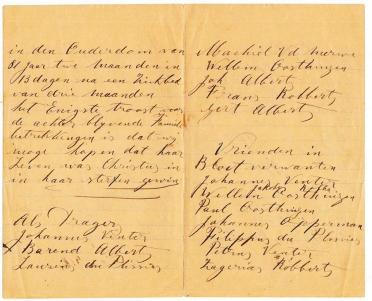 in den Ouderdom van
81 jaar twe maanden in
13 dagen na een Ziekbed
van drie maanden
het Enigste troost voor
de achter blyvende Familie
betrekkingen is dat wy
moge hopen dat haar
Leven was Christus in
in haar sterfen gewin
Als Drager
Johannes Venter
x Barend Albert
Lauwrens du Plessies
Machiel Vd merwe
Willem Oosthuizen
Joh Albert
Frans Robbert
Gert Albert
Vrienden in
Bloet verwanten
Johannes Venter
Jakobus
Willem Oosthuizen
Paul Oosthuizen
Johannes Opperman
Filippus du Plessies
Petrus Venter
Zagerias Robbert